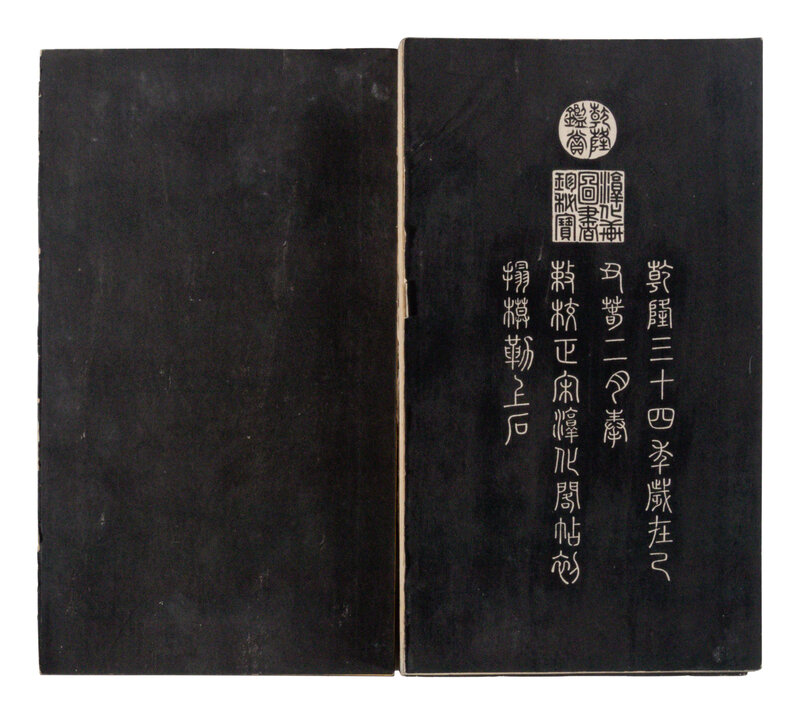 乾隆鑑賞
淳化軒圖書珍秘寶
乾隆三十四年歲在己
丑春二月奉
敕校正宋淳化閣帖初
搨模勒上石